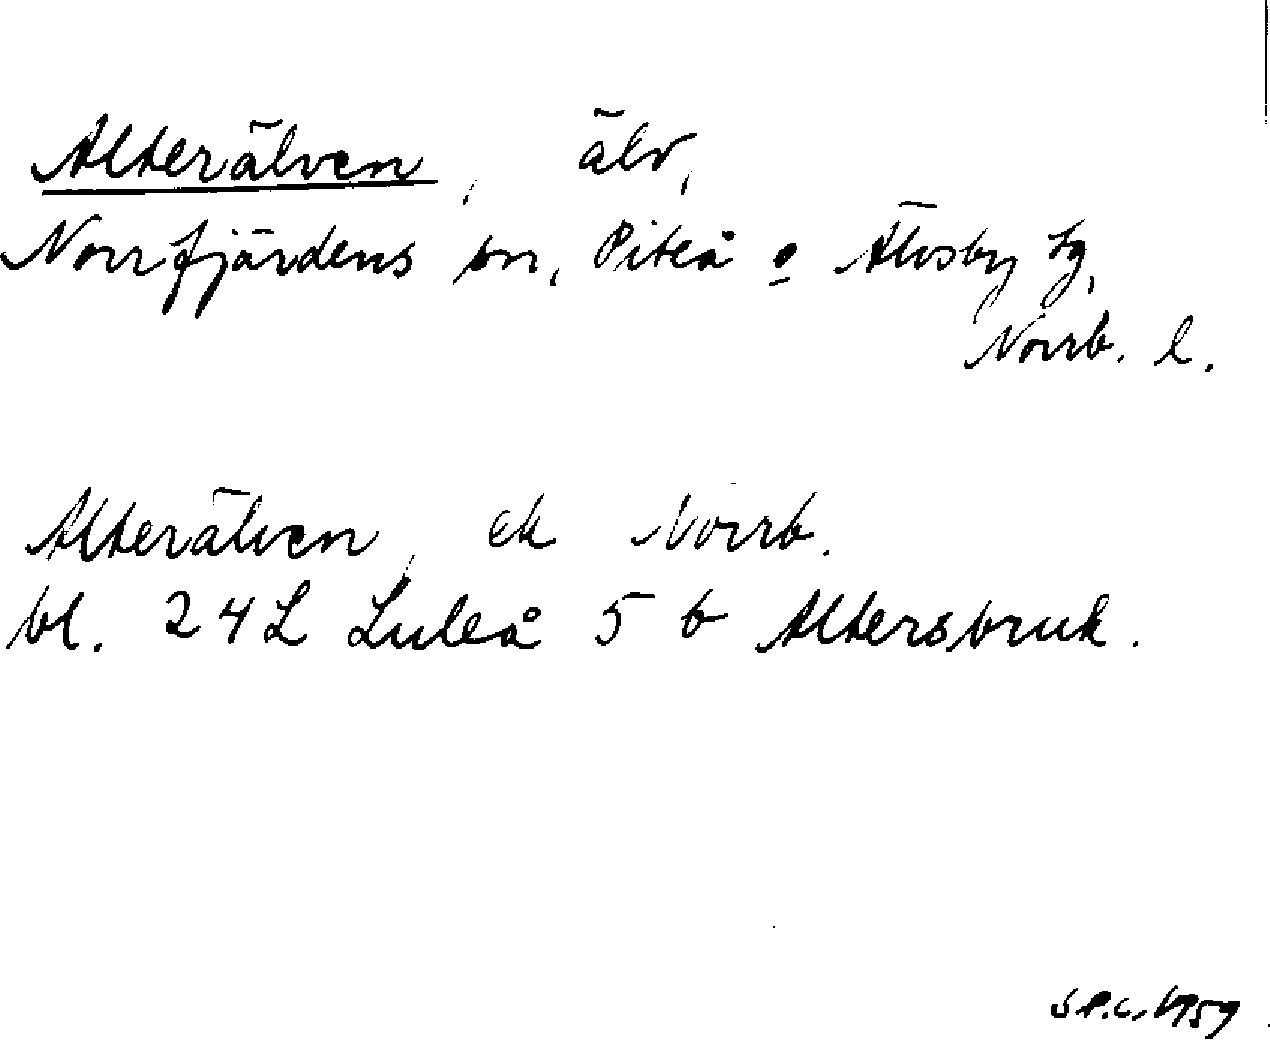 Alterälven, älv,
Norrfjärdens sn, Piteå o Älvsby tg,
Norrb. l.
Alterälven, ek Norrb.
bl. 24L Luleå 5 b Altersbruk.
S.P.C. 1959